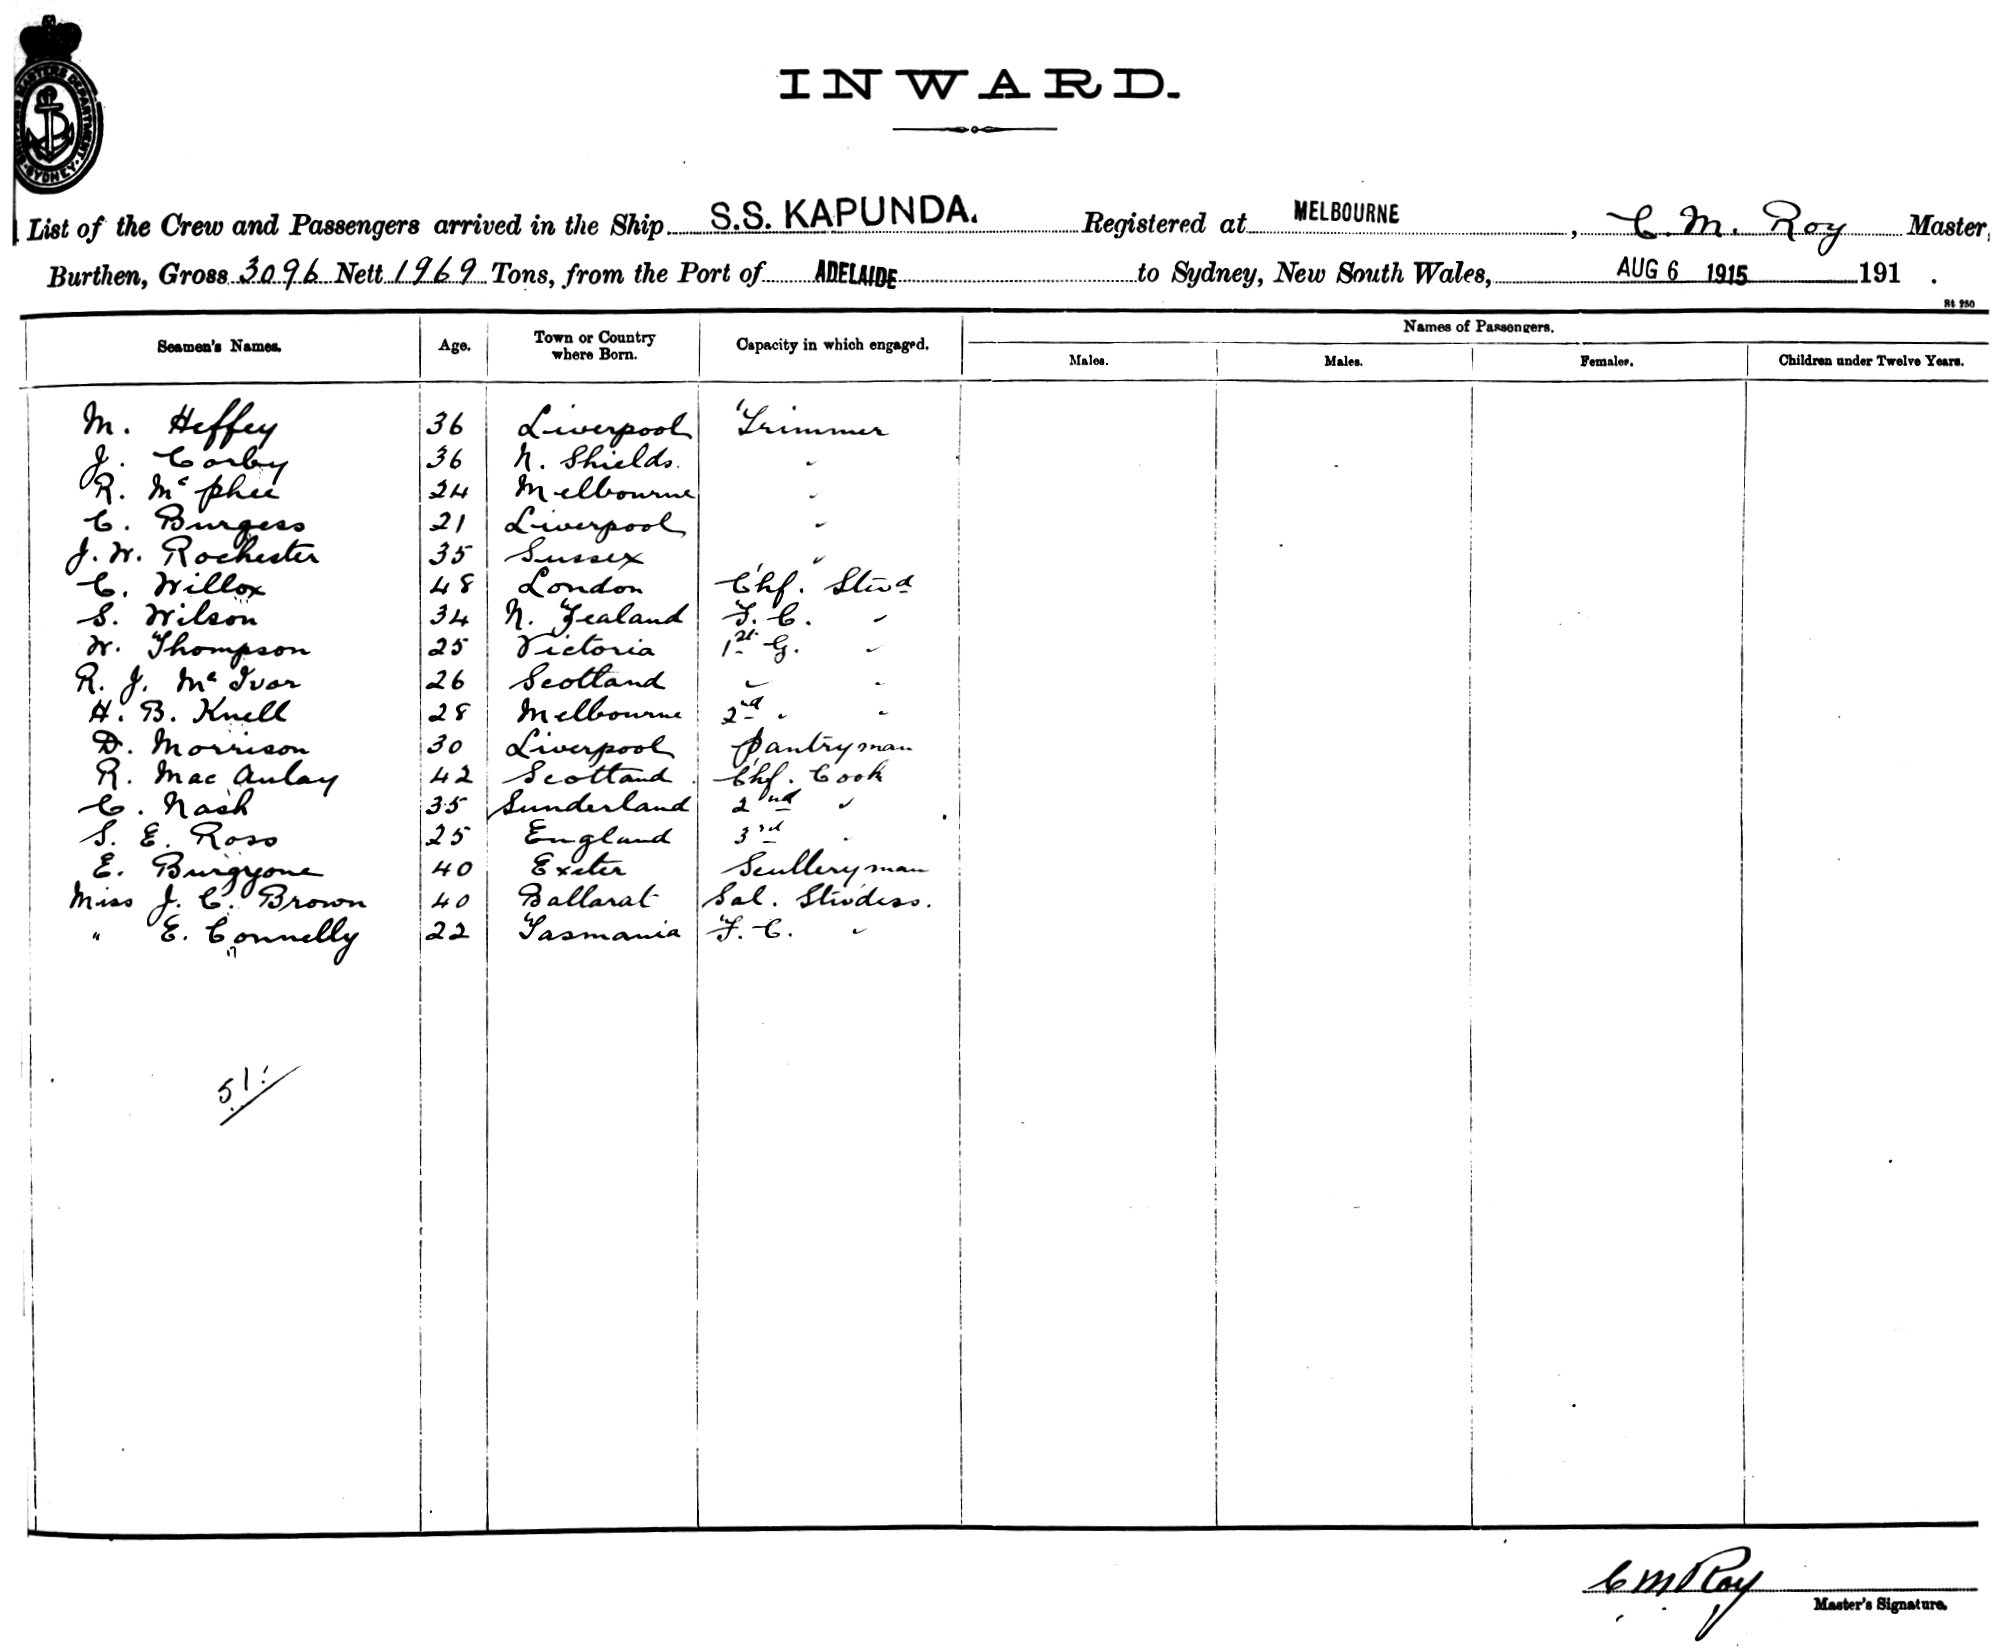 SHIPPING MASTERS DEPARTMENT · SYDNEY ·
INWARD.
List of the Crew and Passengers arrived in the Ship S.S. KAPUNDA. Registered at MELBOURNE, C. M. Roy Master,
Burthen, Gross 3096 Nett 1969 Tons, from the Port of ADELAIDE to Sydney, New South Wales, AUG 6 1915 191 .
St 250
Names of Passengers.
Seamen's Names. Age. Town or Country where Born. Capacity in which engaged. Males. Males. Females. Children under Twelve Years.
M. Heffey 36 Liverpool Trimmer
J. Corby 36 N. Shields. "
R. McPhee 24 Melbourne "
C. Burgess 21 Liverpool "
J. W. Rochester 35 Sussex "
C. Willox 48 London Chf. Stwd
S. Wilson 34 N. Zealand F. C. "
W. Thompson 25 Victoria 1st G. "
R. J. McIvor 26 Scotland " "
H. B. Knell 28 Melbourne 2nd " "
D. Morrison 30 Liverpool Pantryman
R. MacAulay 42 Scotland Chf. Cook
C. Nash 35 Sunderland 2nd "
S. E. Ross 25 England 3rd "
E. Burgyone 40 Exeter Sculleryman
Miss J. C. Brown 40 Ballarat Sal. Stwdess.
" E. Connelly 22 Tasmania F. C. "
51
C M Roy
Master's Signature.